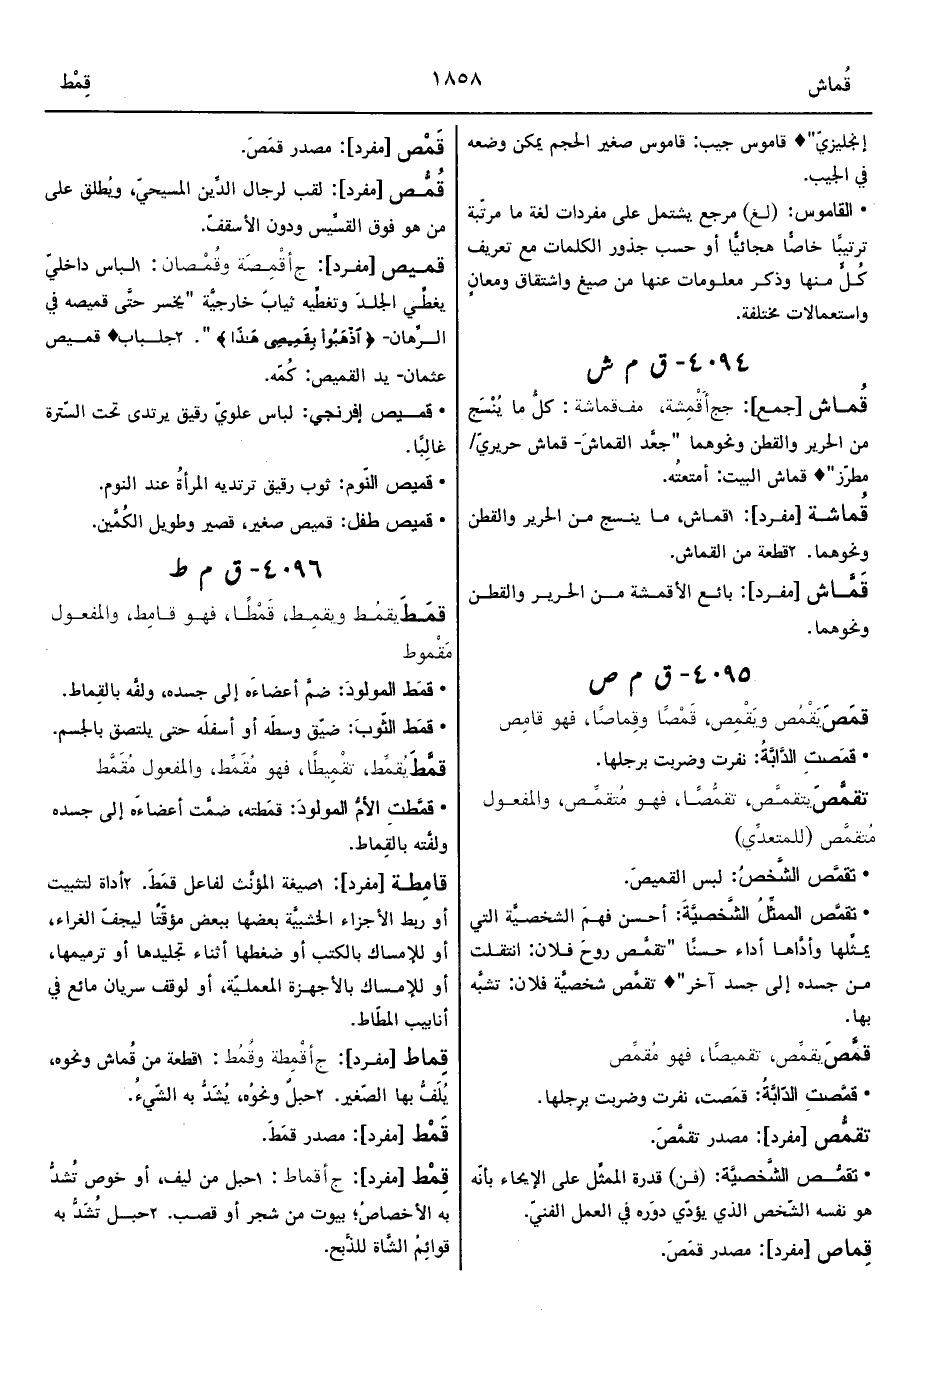 قُماش
١٨٥٨
قِمْط
إنجليزيّ"♦ قاموس جيب: قاموس صغير الحجم يمكن وضعه
في الجيب.
• القاموس: (لغ) مرجع يشتمل على مفردات لغة ما مرتّبة
ترتيبًا خاصًّا هجائيًّا أو حسب جذور الكلمات مع تعريف
كُلٍّ منها وذكر معلومات عنها من صيغ واشتقاق ومعانٍ
واستعمالات مختلفة.
٤٠٩٤- ق م ش
قُماش [جمع]: جج أَقْمِشة، مف قماشة: كلُّ ما يُنْسَج
من الحرير والقطن ونحوهما "جعَّد القماشَ- قماش حريريّ/
مطرّز"♦ قماش البيت: أمتعتُه.
قُماشة [مفرد]: ١قماش، ما ينسج من الحرير والقطن
ونحوهما. ٢قطعة من القماش.
قَمَّاش [مفرد]: بائع الأقمشة من الحرير والقطن
ونحوهما.
٤٠٩٥- ق م ص
قمَصَ يَقْمُص ويَقْمِص، قَمْصًا وقِماصًا، فهو قامِص
• قمَصتِ الدَّابَّةُ: نفرت وضربت برجلها.
تقمَّصَ يتقمَّص، تقمُّصًا، فهو مُتقمِّص، والمفعول
مُتقمَّص (للمتعدِّي)
• تقمَّص الشَّخصُ: لبس القميصَ.
• تقمَّص الممثِّلُ الشَّخصيَّةَ: أحسن فهمَ الشخصيَّة التي
يمثِّلها وأدَّاها أداء حسنًا "تقمَّص روحَ فلان: انتقلت
من جسده إلى جسد آخر"♦ تقمَّص شخصيَّة فلان: تشبَّه
بها.
قمَّصَ يقمِّص، تقميصًا، فهو مُقمِّص
• قمَّصتِ الدَّابَّةُ: قمَصت، نفرت وضربت برجلها.
تقمُّص [مفرد]: مصدر تقمَّصَ.
• تقمُّص الشَّخصيَّة: (فن) قدرة الممثِّل على الإيحاء بأنّه
هو نفسه الشخص الذي يؤدّي دوْره في العمل الفنيّ.
قِماص [مفرد]: مصدر قمَصَ.
قَمْص [مفرد]: مصدر قمَصَ.
قُمُّص [مفرد]: لقب لرجال الدِّين المسيحيّ، ويُطلق على
من هو فوق القسِّيس ودون الأسقفّ.
قميص [مفرد]: ج أَقْمِصَة وقُمْصان: ١لباس داخليّ
يغطِّي الجلدَ وتغطِّيه ثيابٌ خارجيَّة "يخسر حتَّى قميصه في
الرِّهان- ﴿ ٱذْهَبُوا۟ بِقَمِيصِى هَٰذَا ﴾ ". ٢جلباب♦ قميص
عثمان- يد القميص: كُمّه.
• قميص إفرنجي: لباس علويّ رقيق يرتدى تحت السّترة
غالبًا.
• قميص النّوم: ثوب رقيق ترتديه المرأةُ عند النوم.
• قميص طفل: قميص صغير، قصير وطويل الكُمَّين.
٤٠٩٦- ق م ط
قمَطَ يقمُط ويقمِط، قَمْطًا، فهو قامِط، والمفعول
مَقْموط
• قمَط المولودَ: ضمَّ أعضاءَه إلى جسده، ولفَّه بالقِماط.
• قمَط الثَّوبَ: ضيّق وسطَه أو أسفلَه حتى يلتصق بالجسم.
قمَّطَ يُقمِّط، تقْمِيطًا، فهو مُقَمِّط، والمفعول مُقَمَّط
• قمَّطتِ الأمُّ المولودَ: قمَطته، ضمَّت أعضاءَه إلى جسده
ولفَّته بالقِماط.
قامِطة [مفرد]: ١صيغة المؤنَّث لفاعل قمَطَ. ٢أداة لتثبيت
أو ربط الأجزاء الخشبيَّة بعضها ببعض مؤقَّتًا ليجفّ الغراء،
أو للإمساك بالكتب أو ضغطها أثناء تجليدها أو ترميمها،
أو للإمساك بالأجهزة المعمليّة، أو لوقف سريان مائع في
أنابيب المطَّاط.
قِماط [مفرد]: ج أَقْمِطة وقُمُط: ١قطعة من قُماش ونحوه،
يُلَفُّ بها الصَّغير. ٢حبلٌ ونحوُه، يُشَدُّ به الشّيءُ.
قَمْط [مفرد]: مصدر قمَطَ.
قِمْط [مفرد]: ج أقماط: ١حبل من ليف، أو خوص تُشدُّ
به الأخصاصُ؛ بيوت من شجر أو قصب. ٢حبل تُشَدُّ به
قوائِمُ الشَّاة للذَّبح.